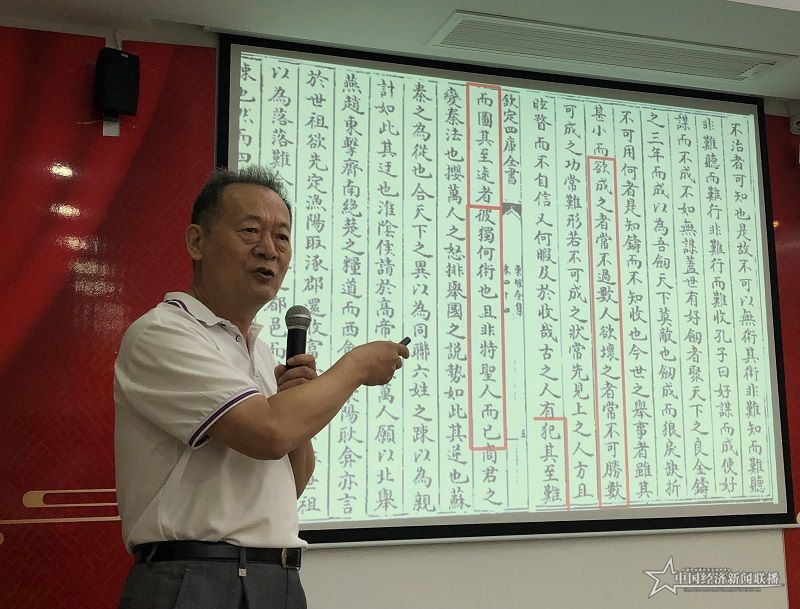 不治者可知也是故不可以無術其術非難知而難聽
非難聽而難行非難行而難收孔子曰好謀而成使好
謀而不成不如無謀蓋世有好劍者聚天下之良金鑄
之三年而成以為吾劍天下莫敵也劍成而狠戾缺折
不可用何者是知鑄而不知收也今世之舉事者雖其
甚小而欲成之者常不過數人欲壞之者常不可勝數
可成之功常難形若不可成之狀常先見上之人方且
眩瞀而不自信又何暇及於收哉古之人有犯其至難
欽定四庫全書
東坡全集
卷四十四
而圖其至遠者彼獨何術也且非特聖人而已商君之
變秦法也攖萬人之怒排舉國之說勢如此其逆也蘇
秦之為從也合天下之異以為同聯六姓之疎以為親
計如此其迂也淮陰侯請於高帝 萬人願以北舉
燕趙東擊齊南絶楚之糧道而西會 陽耿弇亦言
於世祖欲先定漁陽取涿郡還收富
以為落落難 都邑而 世祖
也然而四
中国经济新闻联播